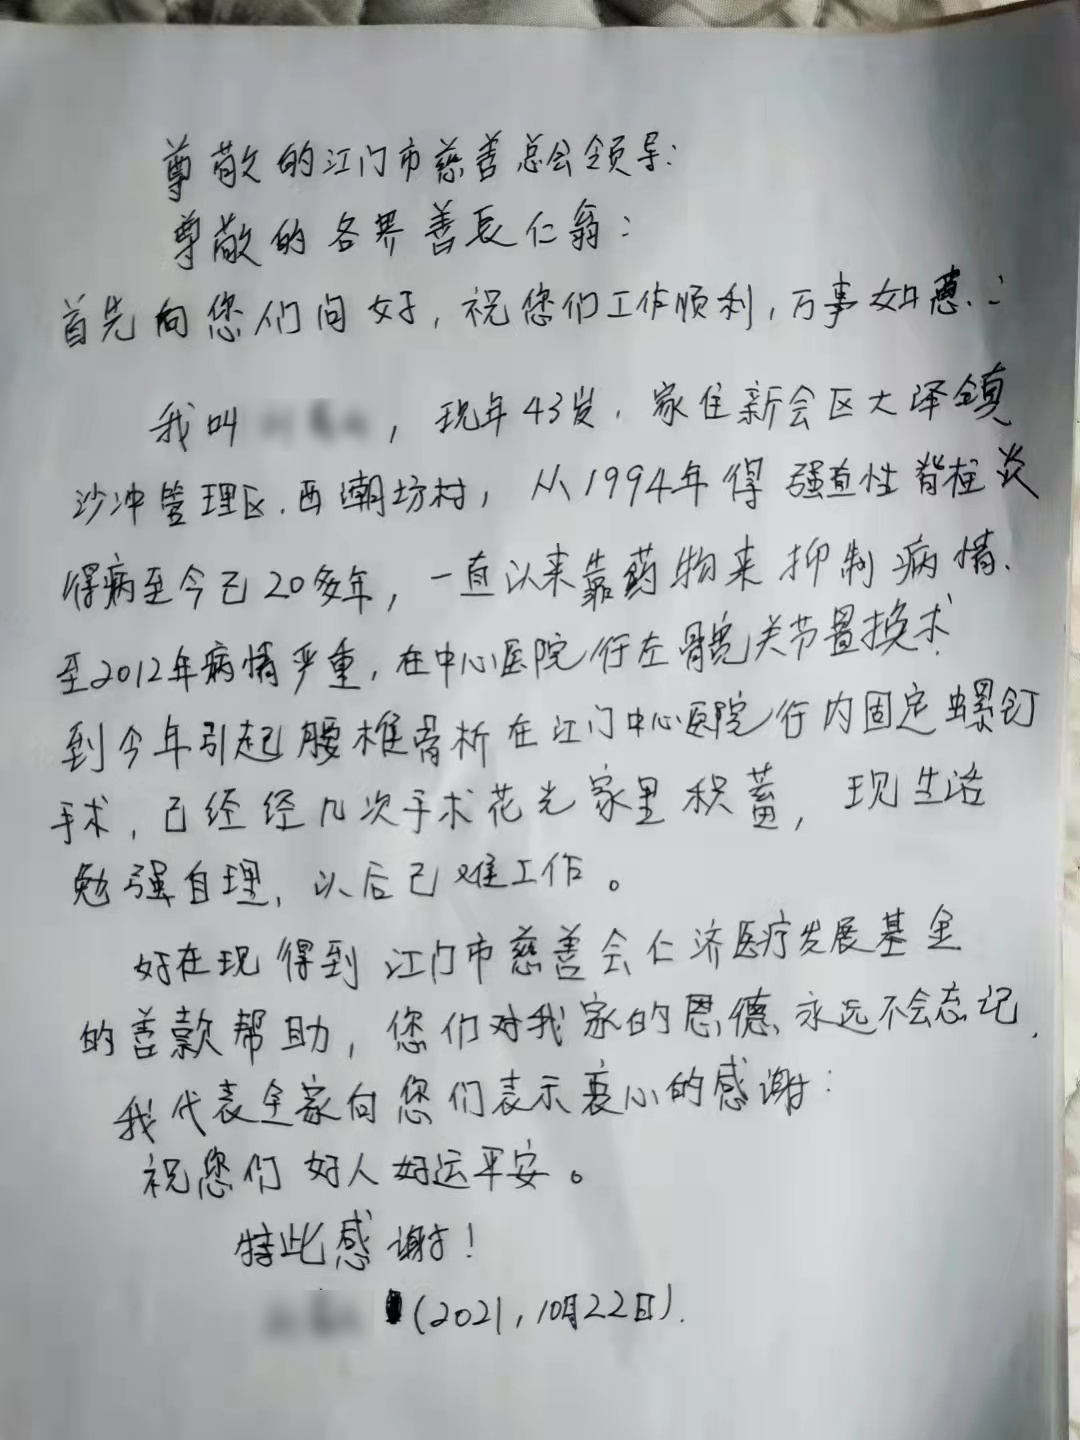 尊敬的江门市慈善总会领导:
尊敬的各界善长仁翁:
首先向您们问好,祝您们工作顺利,万事如意.:
我叫 , 现年43岁.家住新会区大泽镇
沙冲管理区.西潮坊村,从1994年得强直性脊柱炎
得病至今已20多年,一直以来靠药物来抑制病情.
至2012年病情严重,在中心医院行左髋关节置换术.
到今年引起腰椎骨折在江门中心医院行内固定螺钉
手术,已经经几次手术花光家里积蓄,现生活
勉强自理,以后已难工作。
好在现得到江门市慈善会仁济医疗发展基金
的善款帮助,您们对我家的恩德.永远不会忘记.
我代表全家向您们表示衷心的感谢:
祝您们好人好运平安。
特此感谢!
(2021,10月22日).